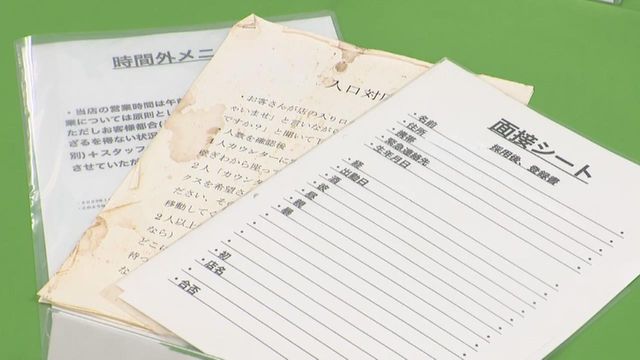 時間外メニ
・当店の営業時間は午前
業については原則とし
ただしお客様都合(
ざるを得ない状況
別)+スタッフ
させていただ
入口対応
・お客さんが店の入り口
ゃいませ」と言いながら
ですか?」と聞いて
人数を確認後
1人カウンターに
2人「カウン
クスを希望さ
ださい。そ
移動して
2人以上
なら)
どこに
待つ
な
面接シート
採用後、登録書
・名前
・住所
・携帯
・緊急連絡先
・生年月日
・昼
・出勤日
・酒
・彼
・昼
・親
・最
・初
・店名
・合否